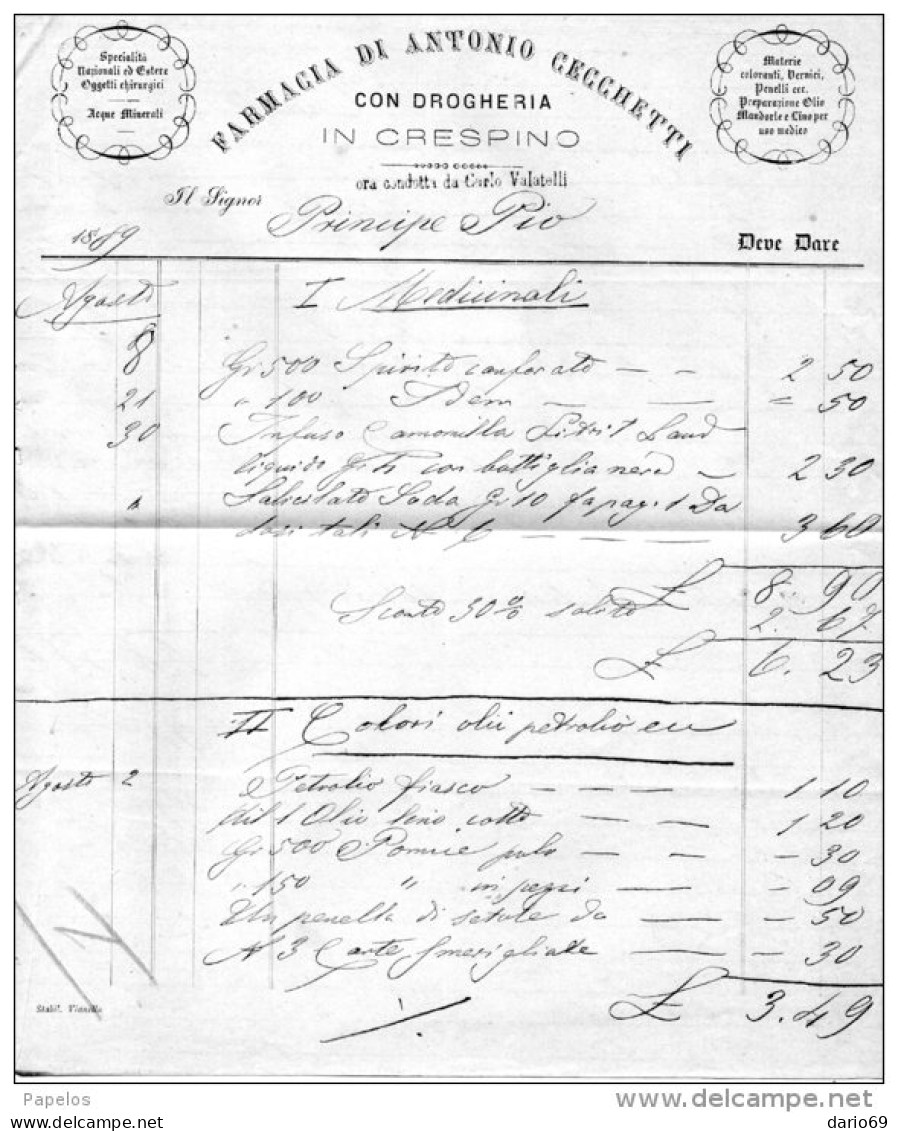 Specialità
Nazionali ed Estere
Oggetti chirurgici
Acque Minerali
FARMACIA DI ANTONIO CECCHETTI
CON DROGHERIA
IN CRESPINO
ora condotta da Carlo Valatelli
Materie
coloranti, Vernici,
Penelli ecc.
Preparazione Olio
Mandorle e Lino per
uso medico
Il Signor Principe Pio
1889 Deve Dare
Agosto I Medicinali
8 Gr 500 Spirito canforato — — 2 50
21 " 100 Idem — — = 50
30 Infuso Camomilla Laud
liquido con bottiglia nera — 2 30
" Salicilato Soda Gr 10
dosi tali N 6 — — — — 3 60
£ 8. 90
Sconto 30% solito 2. 67
£ 6. 23
II Colori olii petrolio ecc
Agosto 2 Petrolio fiasco — — — 1 10
Kil 1 Olio lino cotto — — 1 20
Gr 500 Pomice polv — — — 30
" 150 " in pezzi — — — 09
Un penello di setole da — — 50
N 3 Carte Smerigliate — — — 30
£ 3. 49
Stabil. Vianello
Papelos
delcampe.net
www.delcampe.net
dario69